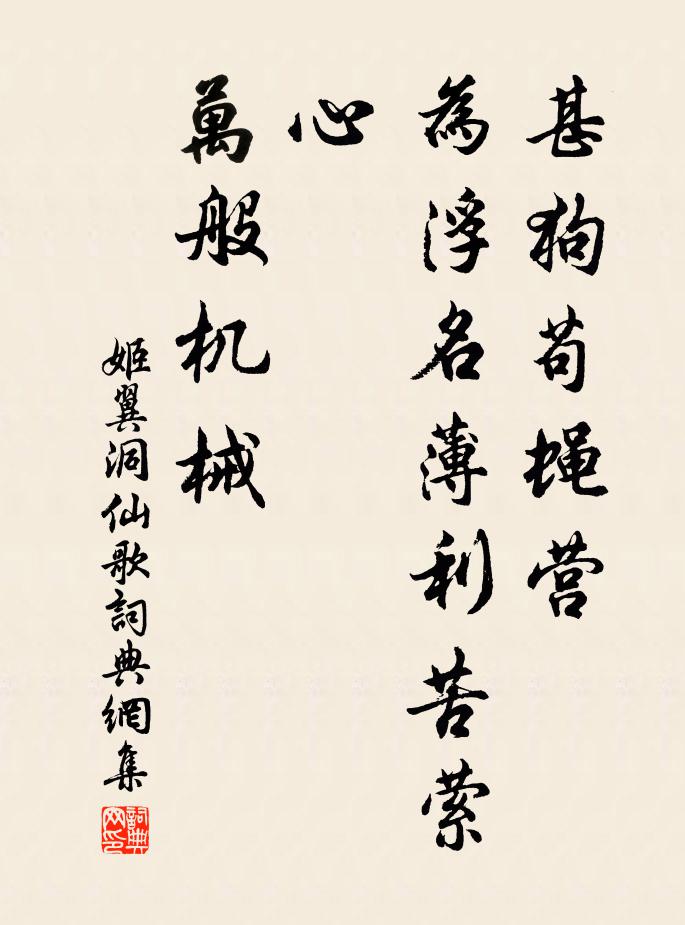 甚狗苟蝇营
為浮名薄利苦萦
心
萬般机械
姬翼洞仙歌詞典網集
詞典网印